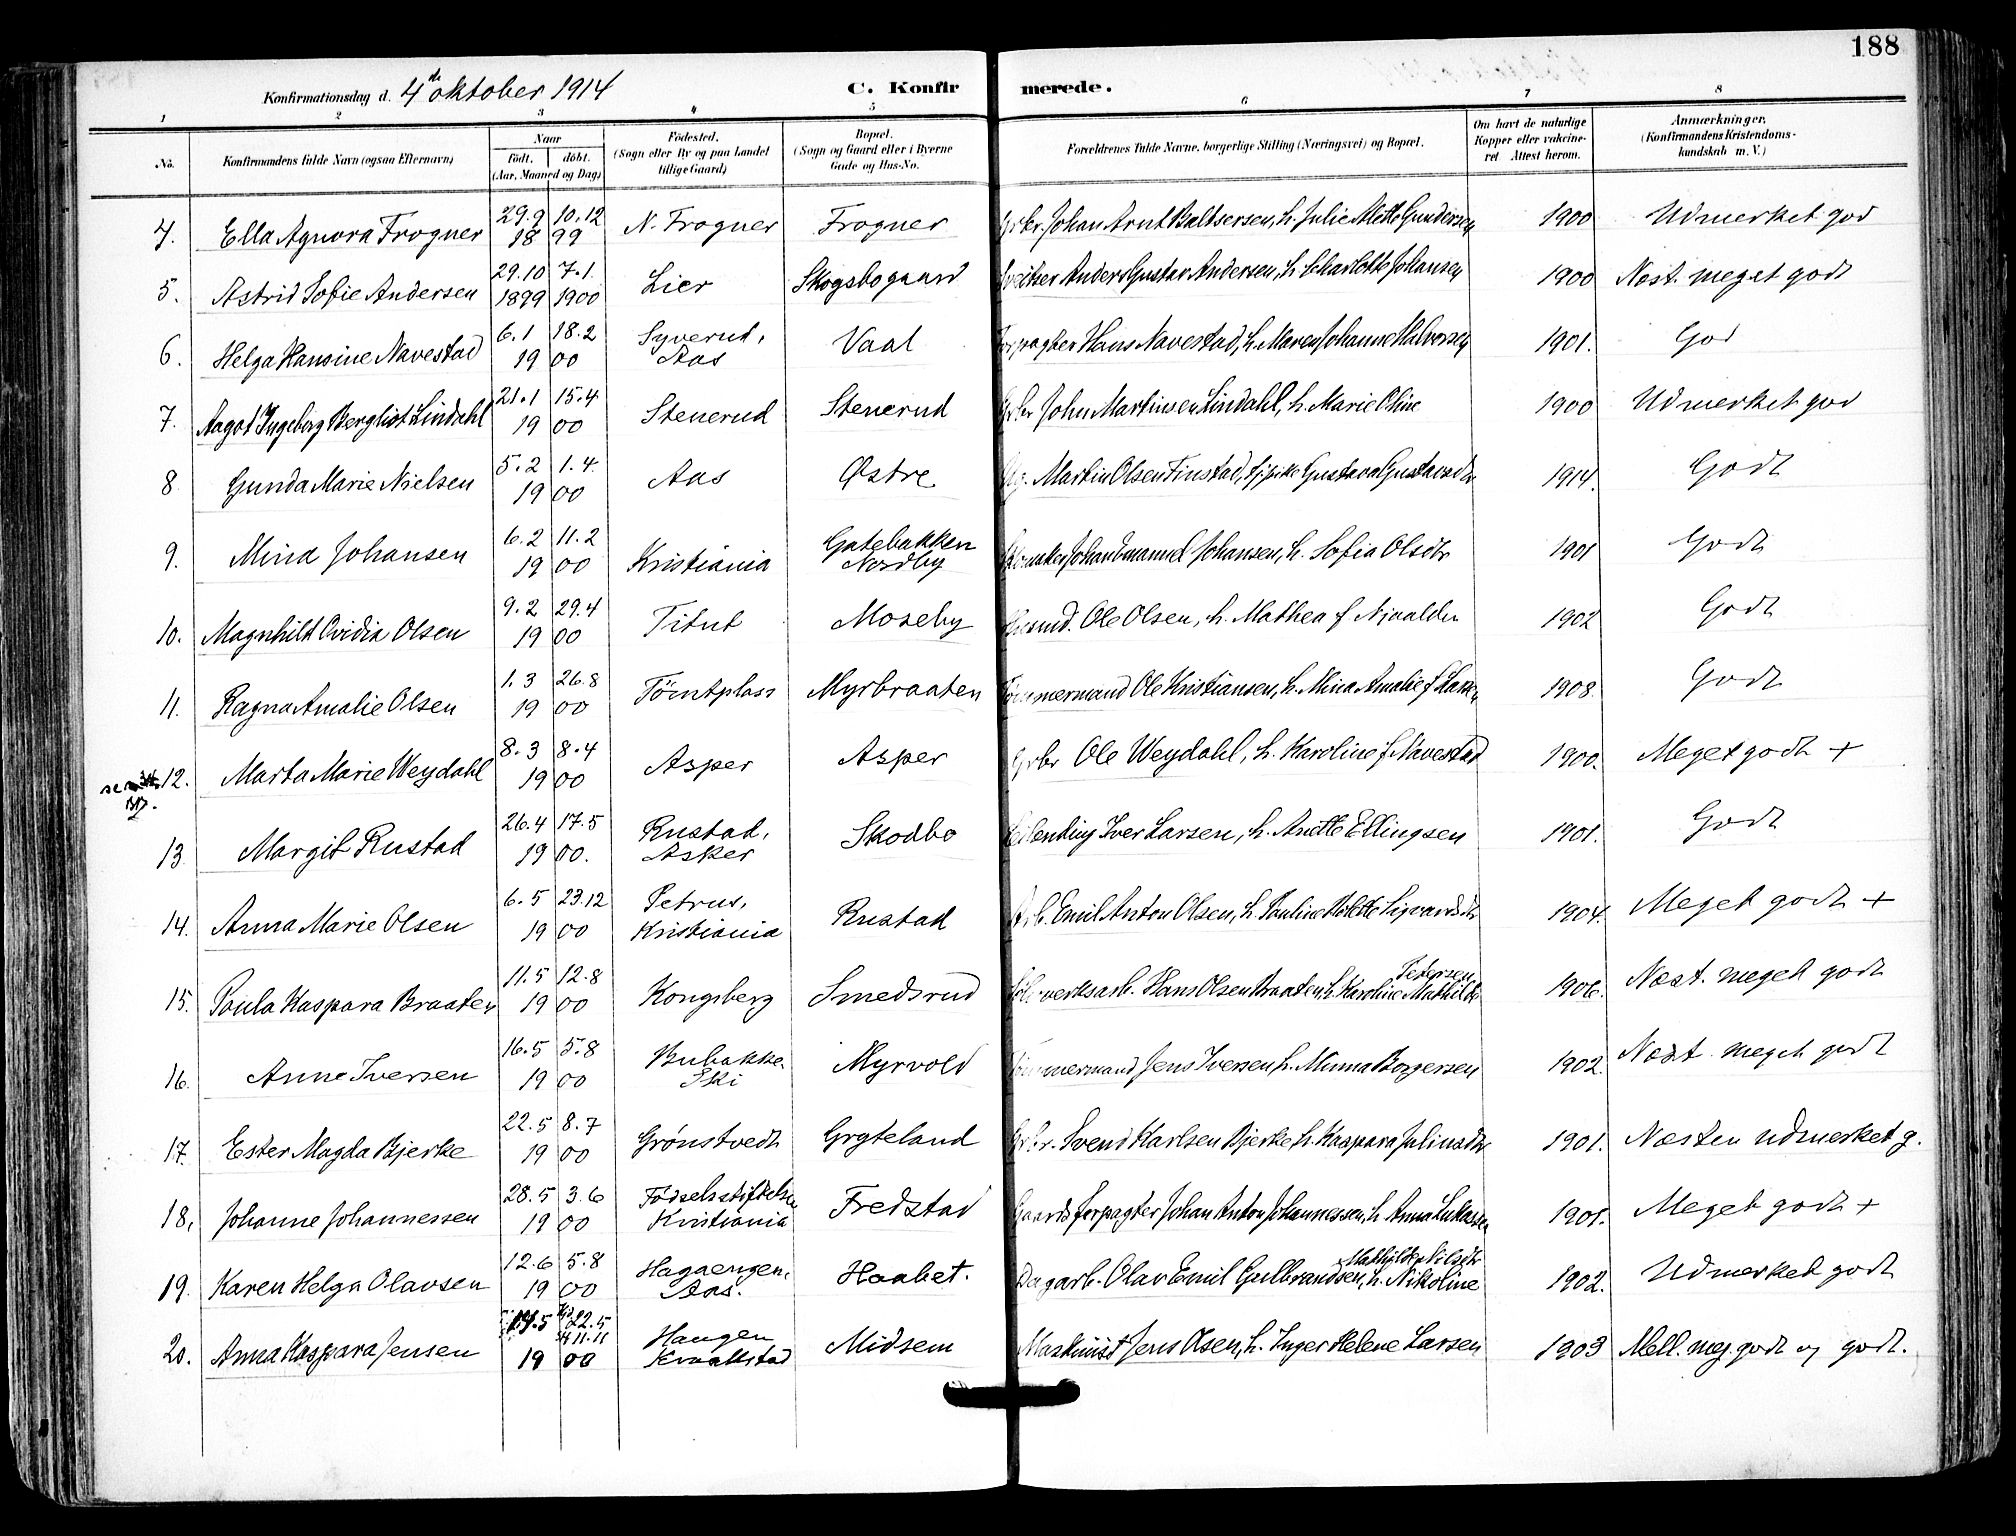 188
Konfirmationsdag d. 4de oktober 1914 C. Konfirmerede.
1 2 3 4 5 6 7 8
No. Konfirmandens fulde Navn (ogsaa Efternavn) Naar Født. døbt. (Aar, Maaned og Dag) Fødested. (Sogn eller By og paa Landet tillige Gaard) Bopæl. (Sogn og Gaard eller i Byerne Gade og Hus-No. Forældrenes fulde Navne, borgerlige Stilling (Næringsvei) og Bopæl. Om havt de naturlige Kopper eller vakcineret Attest herom. Anmærkninger. (Konfirmandens Kristendomskundskab m. V.)
4. Ella Agnora Frogner 29.9 10.12 1899 N. Frogner Frogner Grbr. Johan Arnt Baltsersen, h. Julie Mette Gundersen 1900 Udmerket god
5. Astrid Sofie Andersen 29.10 1899 7.1 1900 Lier Skogsbogaard Anders Gustav Andersen, h. Charlotte Johansen 1900 Næst. meget godt
6. Helga Hansine Navestad 6.1 18.2 1900 Syverud, Aas Vaal Forpagter Hans Navestad, h. Maren Johanne Halvorsen 1901. God
7. Aagot Ingeborg Bergliot Lindahl 21.1 15.4 1900 Stenerud Stenerud Grbr John Martinsen Lindahl, h. Marie Oline 1900 Udmerket god
8. Gunda Marie Nielsen 5.2 1.4 1900 Aas Østre Martin Olsen Finstad, pike Gustava Gustavsdtr 1914. Godt
9. Mina Johansen 6.2 11.2 1900 Kristiania Gatebakken Nordby Skomaker Johan Emanuel Johansen, h. Sofia Olsdtr 1901 Godt
10. Magnhild Ovidia Olsen 9.2 29.4 1900 Titut Moseby Ole Olsen, h. Mathea f. 1902 Godt
11. Ragna Amalie Olsen 1.3 26.8 1900 Tömtplass Myrbraaten Tømmermand Ole Kristiansen, h. Mina Amalie f. Larsen 1908. Godt
12. Marta Marie Weydahl 8.3 8.4 1900 Asper Asper Grbr Ole Weydahl, h. Karoline f. Navestad 1900. Meget godt +
13. Margit Rustad 26.4 17.5 1900. Rustad, Asker Skodbo Leilending Iver Larsen, h. Anette Ellingsen 1901. Godt
14. Anna Marie Olsen 6.5 23.12 1900 Petrus, Kristiania Rustad Arb. Emil Anton Olsen, h. Pauline Molette Sigvardsdtr 1904. Meget godt +
15. Paula Kaspara Braaten 11.5 12.8 1900 Kongsberg Smedsrud Sølvverksarb. Hans Olsen Braaten h. Karoline Mathilde Petersen 1906. Næst. meget godt
16. Anne Iversen 16.5 5.8 1900 Bubakke. Ski Myrvold Tømmermand Jens Iversen, h. Minna Borgersen 1902. Næst. meget godt
17. Ester Magda Bjerke 22.5 8.7 1900 Grønstvedt Grgteland Grbr. Svend Karlsen Bjerke h. Kaspara Julinsdtr 1901. Næsten udmerket g.
18, Johanne Johannessen 28.5 3.6 1900 Födselsstiftelse Kristiania Fredstad Gaardsforpagter Johan Anton Johannessen, h Anna Lukassen 1901. Meget godt +
19. Karen Helga Olavsen 12.6 5.8 1900 Hagaengen, Aas. Haabet. Dagarb. Olav Emil Gulbrandsen, h. Nikoline Mathilde Nilsdtr 1902. Udmerket godt
20. Anna Kaspara Jensen 14.5 22.5 11.11 1900 Haugen Kraakstad Midsem Maskinist Jens Olsen, h. Inger Helene Larsen 1903 Mell. meg. godt og godt.